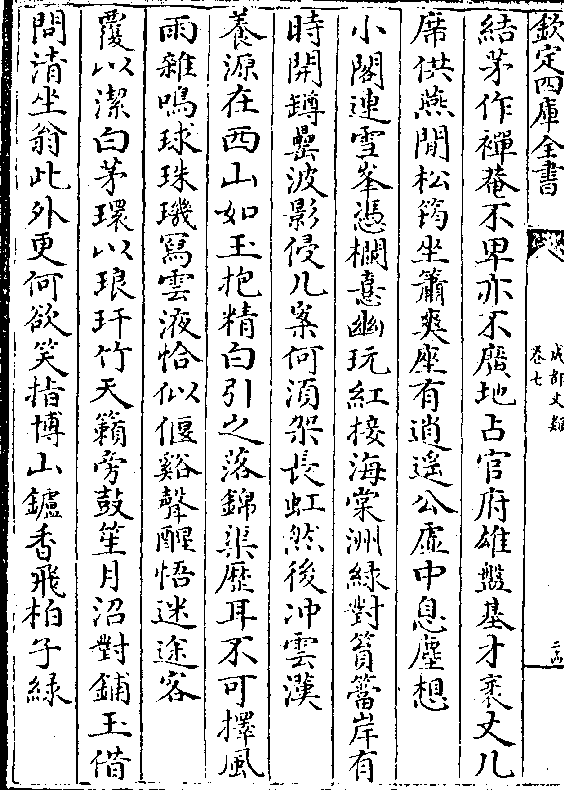 欽定四庫全書
成都文類
卷七
二十四
結茅作禪菴不卑亦不廣地占官府雄盤基才袤丈几
席供燕閒松筠坐蕭爽座有逍遥公虚中息塵想
小閣連雪峯憑欄憙幽玩紅接海棠洲緑對篔簹岸有
時開罇罍波影侵几案何須架長虹然後冲雲漢
養源在西山如玉抱精白引之落錦渠歷耳不可擇風
雨雜鳴球珠璣寫雲液恰似偃谿聲醒悟迷途客
覆以潔白茅環以琅玕竹天籟旁鼓笙月沼對鋪玉借
問清坐翁此外更何欲笑指博山鑪香飛柏子緑